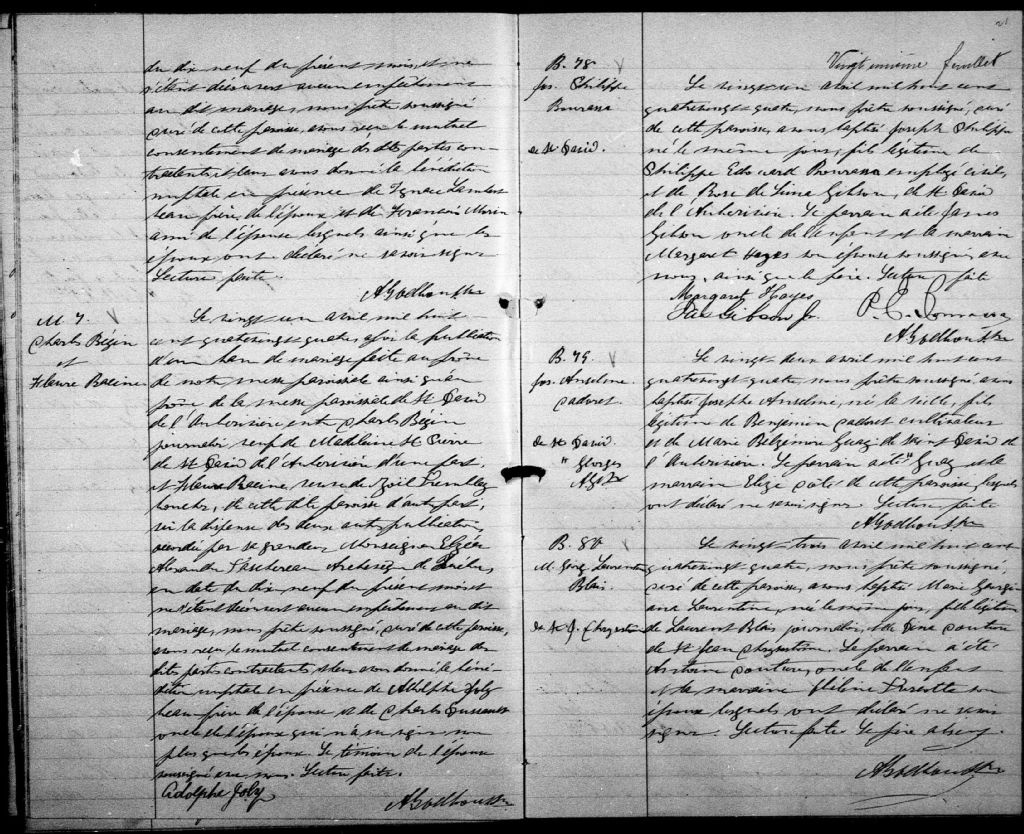 du dix neuf du présent mois, et ne
s'étant découvert aucun empêchement
au dit mariage, nous prêtre soussigné
curé de cette paroisse, avons reçu le mutuel
consentement de mariage des dits parties con-
tractantes et leur avons donné la bénédiction
nuptiale en présence de Ignace Lambert
beau frère, de l'époux et de Francois Morin
ami de l'épouse lesquels ainsi que les
époux ont déclaré ne savoir signer
Lecture faite.
M. 7.
Charles Bégin
et
Flavie Racine
Le vingt un avril mil huit
cent quatre vingt quatre, après la publication
d'un ban de mariage faite au prône
de notre messe paroissiale ainsi qu'au
prône de la messe paroissiale de St David
de l'Auberivière entre Charles Bégin
journalier veuf de Madeleine St Pierre
de St David de l'Auberivière d'une part,
et Flavie Racine, veuve de Tremblay
de cette dite paroisse d'autre part,
vu la dispense des deux autres publications
accordée par sa grandeur Monseigneur Elzéar
Alexandre Taschereau Archevêque de Québec
en date du dix neuf du présent mois et
ne s'étant découvert aucun empêchement au dit
mariage, nous prêtre soussigné, curé de cette paroisse,
avons reçu le mutuel consentement de mariage des
dites parties contractantes et leur avons donné la béné-
diction nuptiale en présence de Adolphe Joly
beau frère de l'épouse et de Charles
oncle de l'époux qui n'a su signer non
plus que les époux. Le témoin de l'épouse
soussigné avec nous. Lecture faite.
Adolphe Joly
21
Vingt unième feuillet
B. 78
Jos. Philippe
Bourassa
de St David.
Le vingt un avril mil huit cent
quatrevingt quatre, nous prêtre soussigné, curé
de cette paroisse, avons baptisé Joseph Philippe
né le même jour, fils légitime de
Philippe Edouard Bourassa employé civil,
et de Rose de Lima Gibson, de St David
de l'Auberivière. Le parrain a été James
Gibson oncle de l'enfant et la marraine
Margaret Hayes son épouse soussignés avec
nous, ainsi que le père. Lecture faite
Margaret Hayes
Jas Gibson Jr. P. E. Bourassa
B. 79.
Jos. Anselme
Cadoret
de St David.
" Georges
Le vingt deux avril mil huit cent
quatrevingt quatre, nous prêtre soussigné, avons
baptisé Joseph Anselme, né la veille, fils
légitime de Benjamin Cadoret cultivateur
et de Marie Guay de Saint David de
l'Auberivière. Le parrain a été Guay et la
marraine Côté de cette paroisse, lesquels
ont déclaré ne savoir signer. Lecture faite
B. 80
M. Georg. Laurentine
Blais.
de St J. Chrysostôme
Le vingt trois avril mil huit cent
quatrevingt quatre, nous prêtre soussigné,
curé de cette paroisse, avons baptisé Marie Georgi-
ana Laurentine, née le même jour, fille légitime
de Laurent Blais journalier, et de Couture
de St Jean Chrysostôme. Le parrain a été
Antoine Couture, oncle de l'enfant
et la marraine Hélène Turcotte son
épouse lesquels ont déclaré ne savoir
signer. Lecture faite Le père absent.